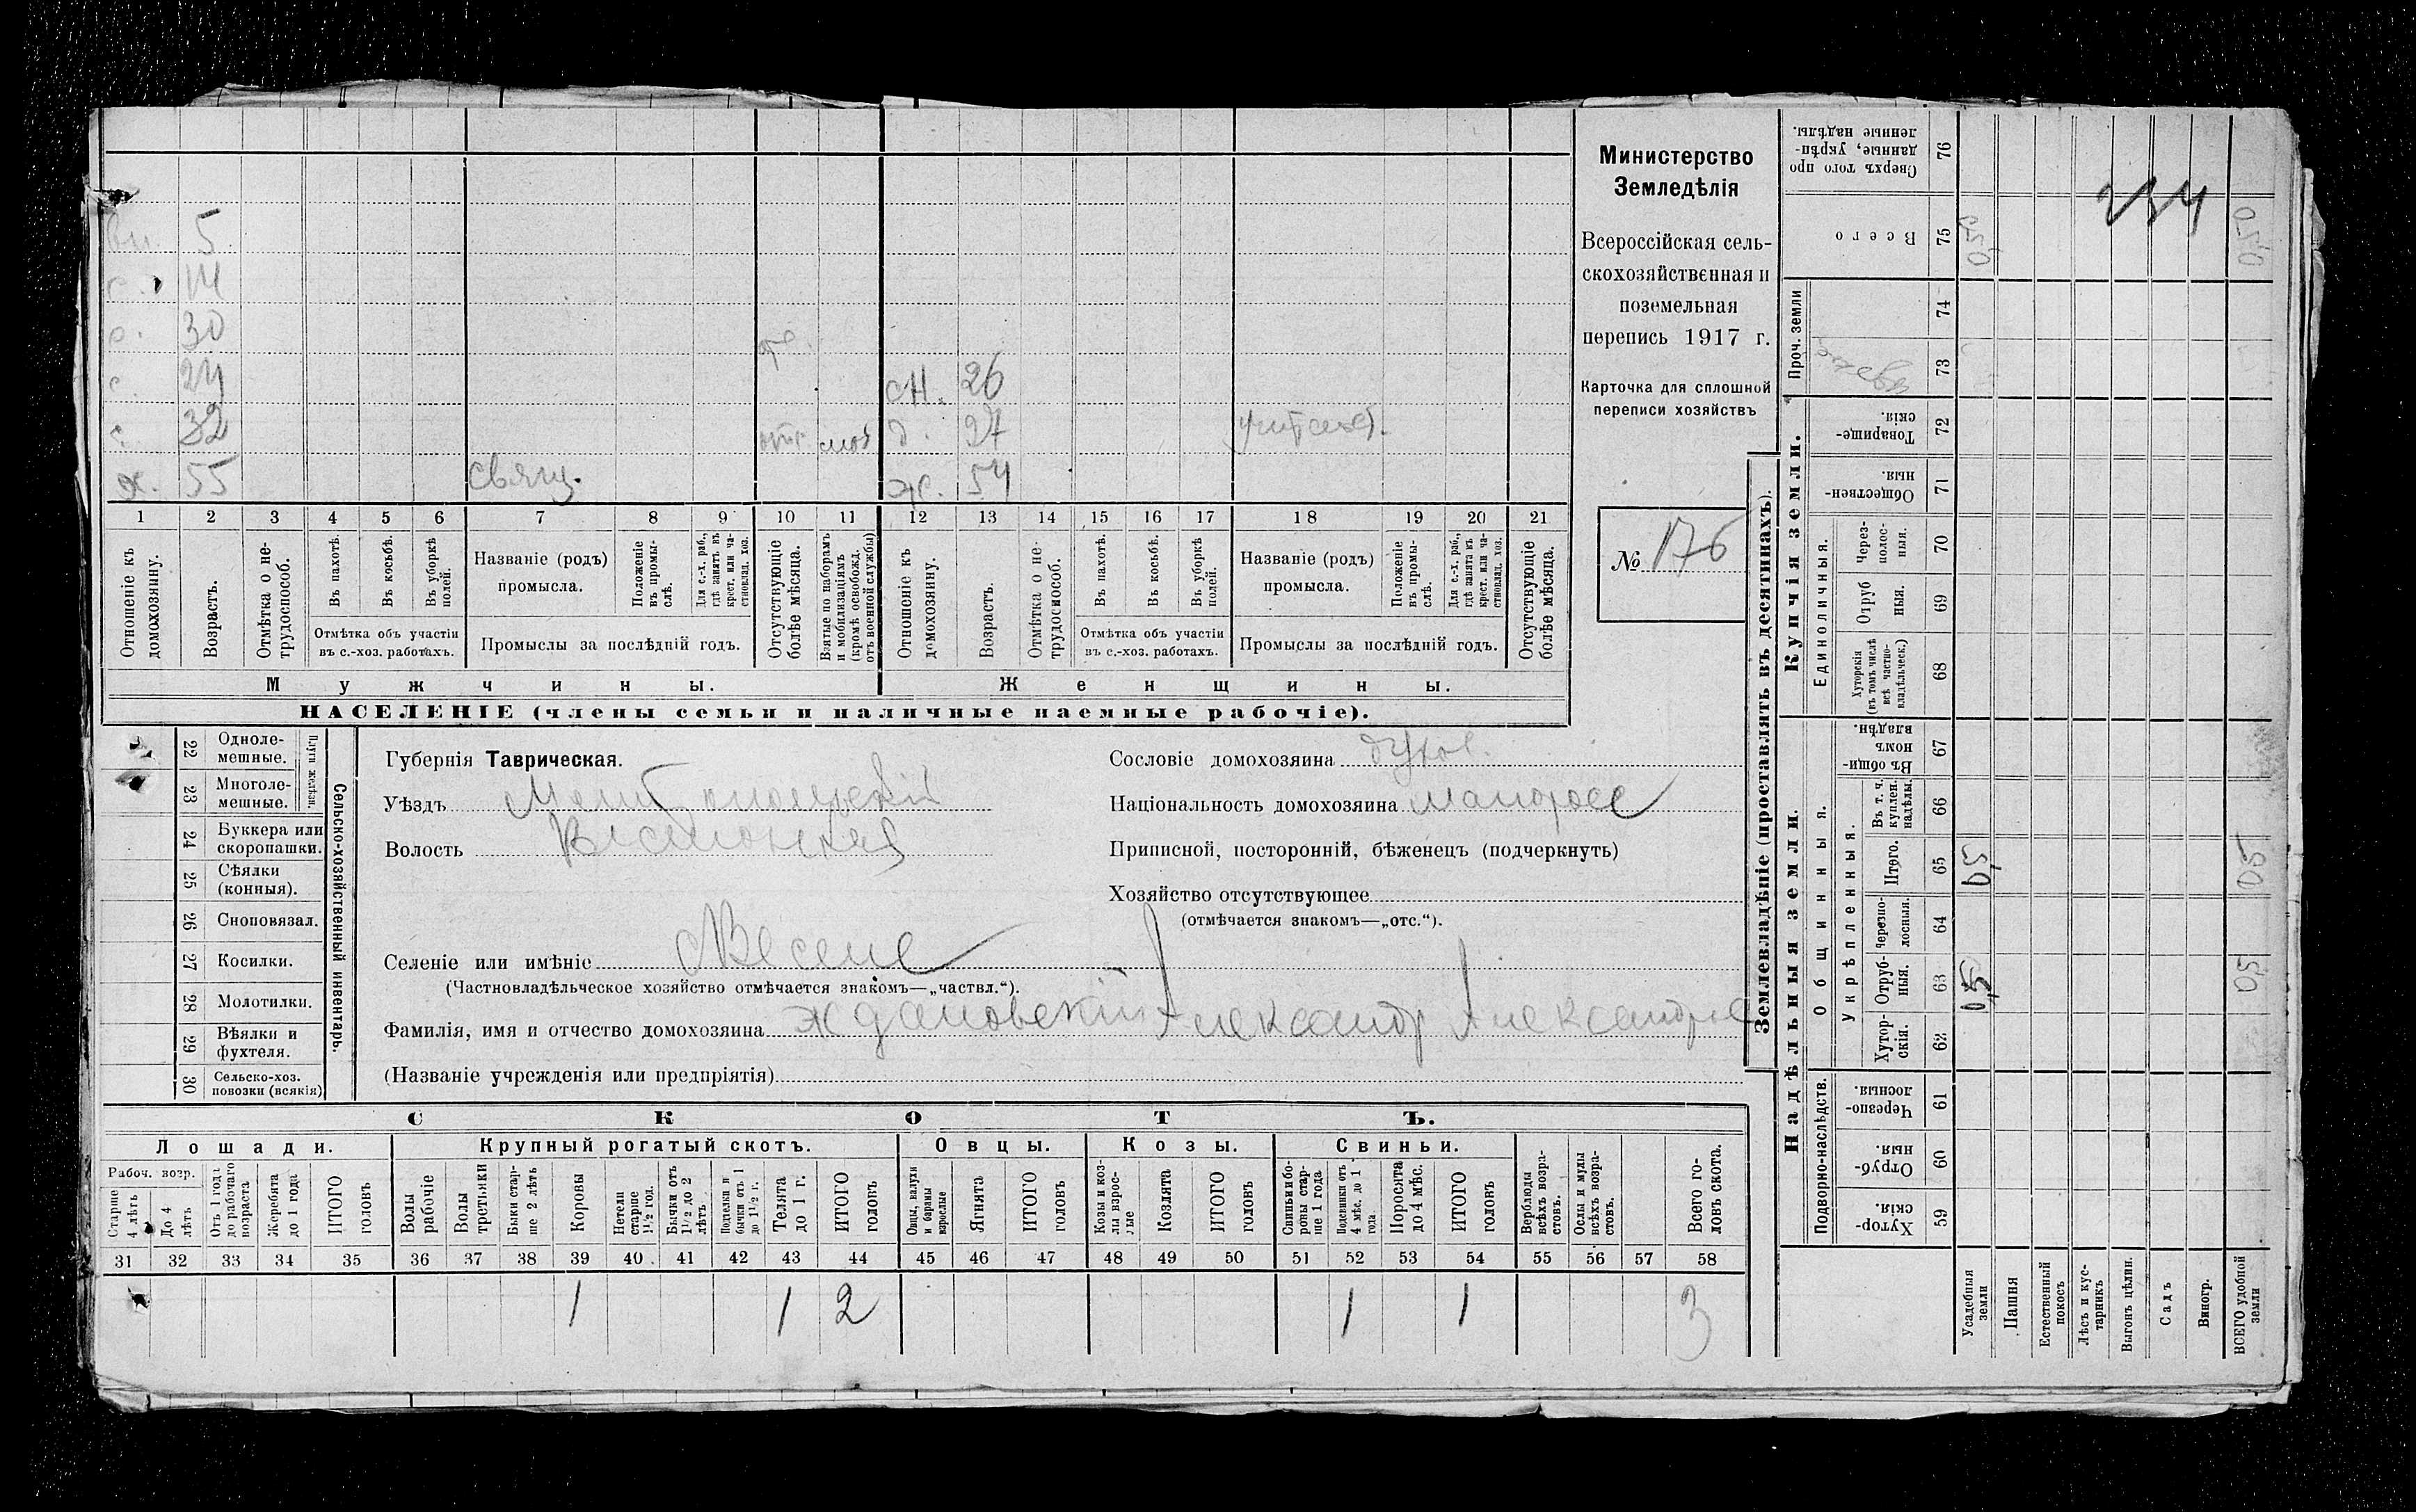 Вн. 5
с. 14
с. 30 отс.
с. 24 сн. 26
с. 32 отс. моб д. 27 учительст.
х. 55 священ. ж. 54
1 2 3 4 5 6 7 8 9 10 11 12 13 14 15 16 17 18 19 20 21
Отношеніе къ домохозяину.
Возрастъ.
Отмѣтка о нетрудоспособ.
Въ пахотѣ.
Въ косьбѣ.
Въ уборкѣ полей.
Отмѣтка объ участіи
въ с.-хоз. работахъ.
Названіе (родъ)
промысла.
Положеніе въ промыслѣ.
Для с.-х. раб., гдѣ занятъ въ крест. или частновлад. хоз.
Промыслы за послѣдній годъ.
Отсутствующіе болѣе мѣсяца.
Взятые по наборамъ и мобилизаціямъ (кромѣ освобожд. отъ военной службы)
Отношеніе къ домохозяину.
Возрастъ.
Отмѣтка о нетрудоспособ.
Въ пахотѣ.
Въ косьбѣ.
Въ уборкѣ полей.
Отмѣтка объ участіи
въ с.-хоз. работахъ.
Названіе (родъ)
промысла.
Положеніе въ промыслѣ.
Для с.-х. раб., гдѣ занята въ крест. или частновлад. хоз.
Промыслы за послѣдній годъ.
Отсутствующіе болѣе мѣсяца.
Мужчины. Женщины.
НАСЕЛЕНІЕ (члены семьи и наличные наемные рабочіе).
Министерство
Земледѣлія
Всероссійская сель-
скохозяйственная и
поземельная
перепись 1917 г.
Карточка для сплошной
переписи хозяйствъ
№ 176
Сельско-хозяйственный инвентарь.
Плуги желѣзн.
22 Одноле-
мешные.
23 Многоле-
мешные.
24 Буккера или
скоропашки.
25 Сѣялки
(конныя).
26 Сноповязал.
27 Косилки.
28 Молотилки.
29 Вѣялки и
фухтеля.
30 Сельско-хоз.
повозки (всякія)
Губернія Таврическая.
Уѣздъ Мелитопольскій
Волость
Селеніе или имѣніе Веселе
(Частновладѣльческое хозяйство отмѣчается знакомъ—„частвл.“).
Фамилія, имя и отчество домохозяина Ждановскій Александр Александров
(Названіе учрежденія или предпріятія)
Сословіе домохозяина духов.
Національность домохозяина малоросс
Приписной, посторонній, бѣженецъ (подчеркнуть)
Хозяйство отсутствующее
(отмѣчается знакомъ—„отс.“).
СКОТЪ.
Лошади. Крупный рогатый скотъ. Овцы. Козы. Свиньи.
Рабоч. возр.
Старше 4 лѣтъ
До 4 лѣтъ
Отъ 1 года до рабочаго возраста
Жеребята до 1 года
ИТОГО головъ
Волы рабочіе
Волы третьяки
Быки старше 2 лѣтъ
Коровы
Нетели старше 1½ год.
Бычки отъ 1½ до 2 лѣтъ
Подтелки и бычки отъ 1 до 1½ г.
Телята до 1 г.
ИТОГО головъ
Овцы, валухи и бараны взрослые
Ягнята
ИТОГО головъ
Козы и козлы взрослые
Козлята
ИТОГО головъ
Свиньи и боровы старше 1 года
Подсвинки отъ 4 мѣс. до 1 года
Поросята до 4 мѣс.
ИТОГО головъ
Верблюды всѣхъ возрастовъ.
Ослы и мулы всѣхъ возрастовъ.
Всего головъ скота.
31 32 33 34 35 36 37 38 39 40 41 42 43 44 45 46 47 48 49 50 51 52 53 54 55 56 57 58
1 1 2 1 1 3
Землевладѣніе (проставлять въ десятинахъ).
Купчія земли.
Надѣльныя земли.
Проч. земли
Единоличныя.
Общинныя.
Укрѣпленныя.
Подворно-наслѣдств.
Сверхъ того проданные, укрѣпленные надѣлы. 76
Всего 75 0,50 0,50
74
церков 73
Товарищескія. 72
Общественныя. 71
Черезполосныя. 70
Отрубныя. 69
Хуторскія (въ томъ числѣ всѣ частновладѣльческ.) 68
Въ общинномъ владѣн. 67
Въ т. ч. куплен. надѣлы. 66
Итого. 65 0,5 05
Черезполосныя. 64
Отрубныя. 63 0,5 0,5
Хуторскія. 62
Черезполосныя. 61
Отрубныя. 60
Хуторскія. 59
Усадебныя земли
Пашня
Естественный покосъ
Лѣсъ и кустарникъ
Выгонъ цѣлин.
Садъ
Виногр.
ВСЕГО удобной земли
234